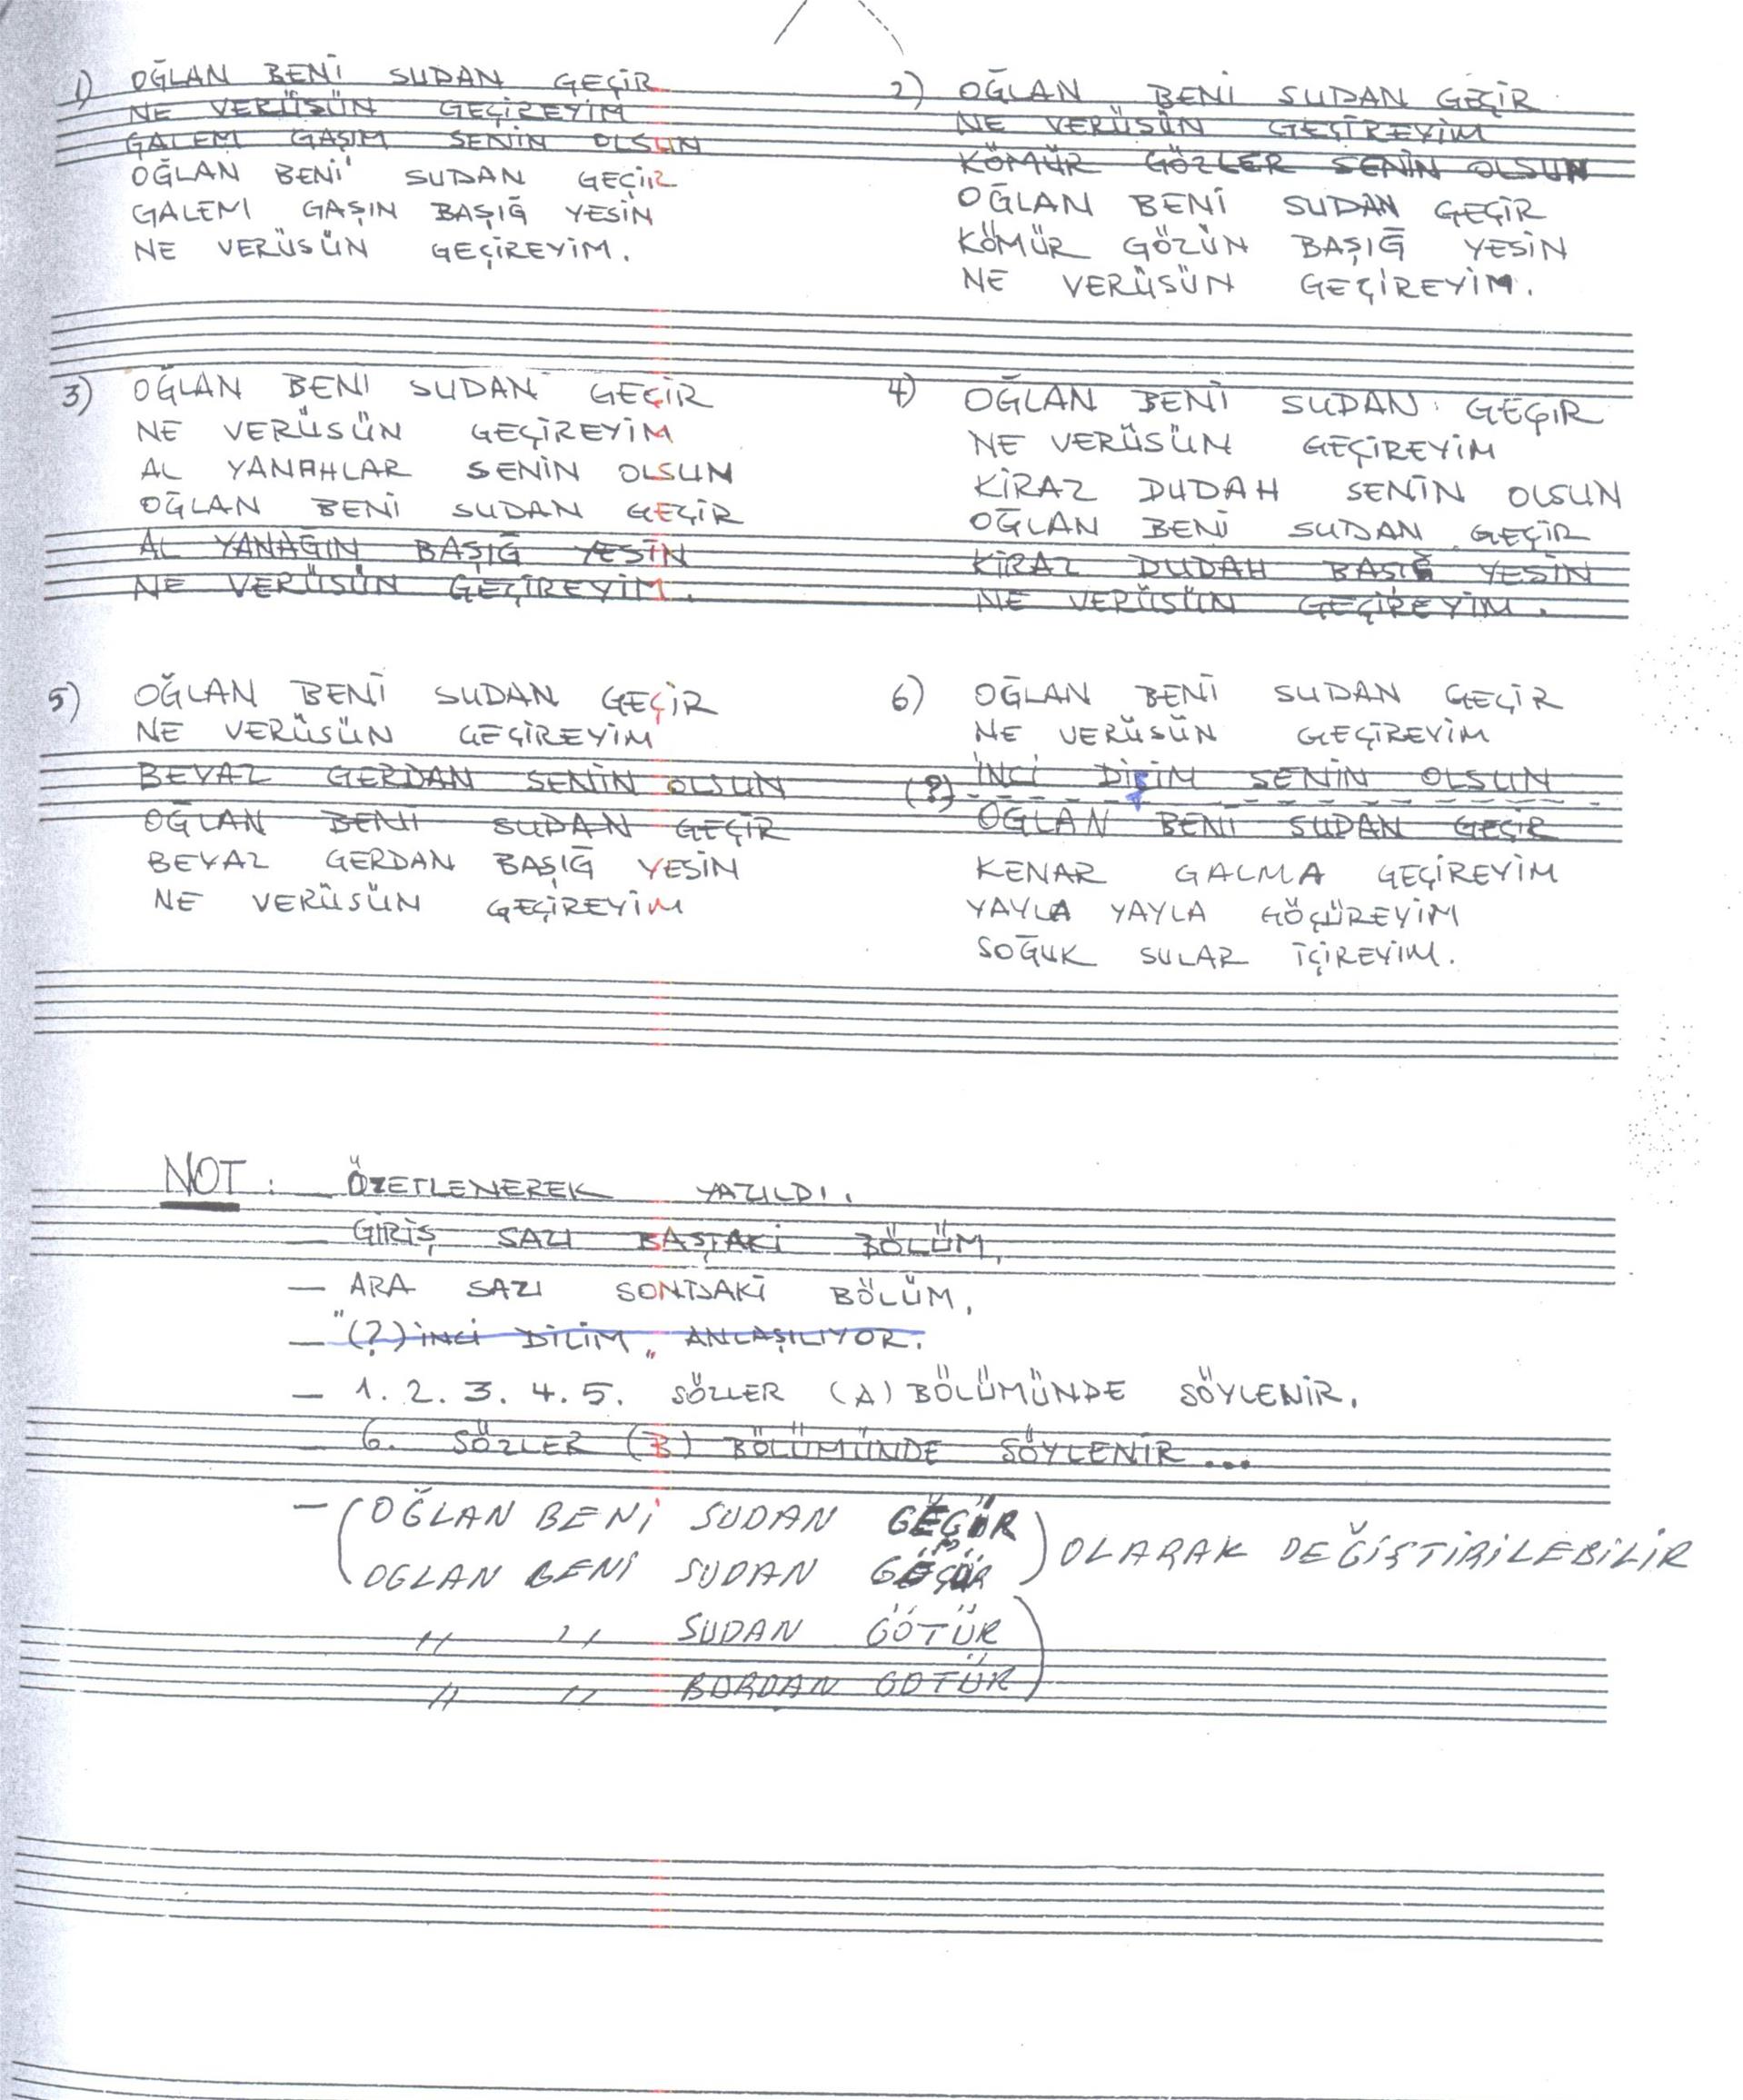 1) OĞLAN BENİ SUDAN GEÇİR
NE VERÜSÜN GEÇİREYİM
GALEM GAŞIM SENİN OLSUN
OĞLAN BENİ SUDAN GEÇİR
GALEM GAŞIN BAŞIĞ YESİN
NE VERÜSÜN GEÇİREYİM.
2) OĞLAN BENİ SUDAN GEÇİR
NE VERÜSÜN GEÇİREYİM
KÖMÜR GÖZLER SENİN OLSUN
OĞLAN BENİ SUDAN GEÇİR
KÖMÜR GÖZÜN BAŞIĞ YESİN
NE VERÜSÜN GEÇİREYİM.
3) OĞLAN BENI SUDAN GEÇİR
NE VERÜSÜN GEÇİREYİM
AL YANAHLAR SENİN OLSUN
OĞLAN BENİ SUDAN GEÇİR
AL YANAĞIN BAŞIĞ YESİN
NE VERÜSÜN GEÇİREYİM.
4) OĞLAN BENİ SUDAN GEÇIR
NE VERÜSÜN GEÇİREYİM
KİRAZ DUDAH SENİN OLSUN
OĞLAN BENİ SUDAN GEÇİR
KİRAZ DUDAH BAŞIĞ YESİN
NE VERÜSÜN GEÇİREYİM.
5) OĞLAN BENİ SUDAN GEÇİR
NE VERÜSÜN GEÇİREYİM
BEYAZ GERDAN SENİN OLSUN
OĞLAN BENİ SUDAN GEÇİR
BEYAZ GERDAN BAŞIĞ YESİN
NE VERÜSÜN GEÇİREYİM
6) OĞLAN BENİ SUDAN GEÇİR
NE VERÜSÜN GEÇİREYİM
(?) İNCİ DİŞİM SENİN OLSUN
OĞLAN BENİ SUDAN GEÇİR
KENAR GALMA GEÇİREYİM
YAYLA YAYLA GÖÇÜREYİM
SOĞUK SULAR İÇİREYİM.
NOT : — ÖZETLENEREK YAZILDI.
— GİRİŞ SAZI BAŞTAKİ BÖLÜM,
— ARA SAZI SONDAKİ BÖLÜM,
— "(?) İNCİ DİLİM" ANLAŞILIYOR.
— 1. 2. 3. 4. 5. SÖZLER (A) BÖLÜMÜNDE SÖYLENİR.
— 6. SÖZLER (B) BÖLÜMÜNDE SÖYLENİR...
— (OĞLAN BENİ SUDAN GEÇÜR
OGLAN BENİ SUDAN GÖÇÜR) OLARAK DEĞİŞTİRİLEBİLİR
" " SUDAN GÖTÜR
" " BURDAN GÖTÜR)